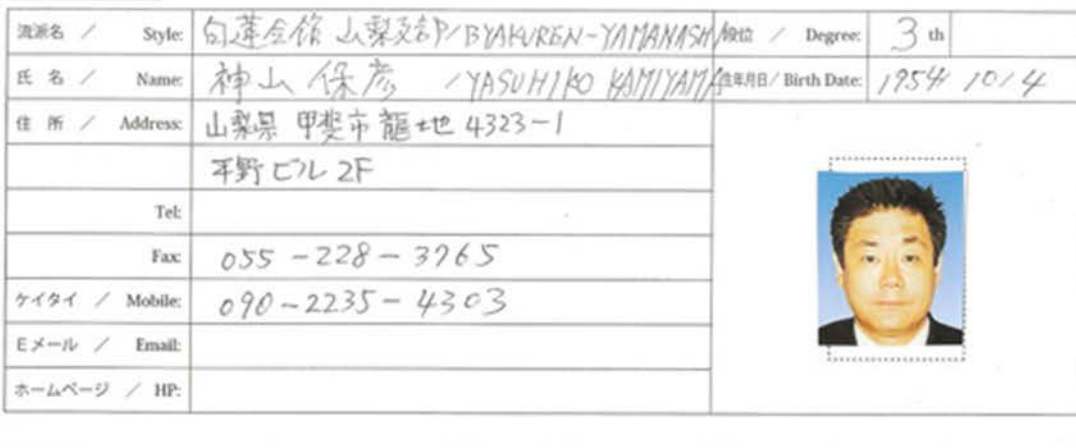 流派名 / Style: 白蓮会館 山梨支部/BYAKUREN-YAMANASH 段位 / Degree: 3 th
氏 名 / Name: 神山 保彦 /YASUHIKO KAMIYAMA 生年月日 / Birth Date: 1954 10/4
住 所 / Address: 山梨県 甲斐市 龍地 4323-1
平野ビル 2F
Tel:
Fax: 055-228-3765
ケイタイ / Mobile: 090-2235-4303
Eメール / Email:
ホームページ / HP: